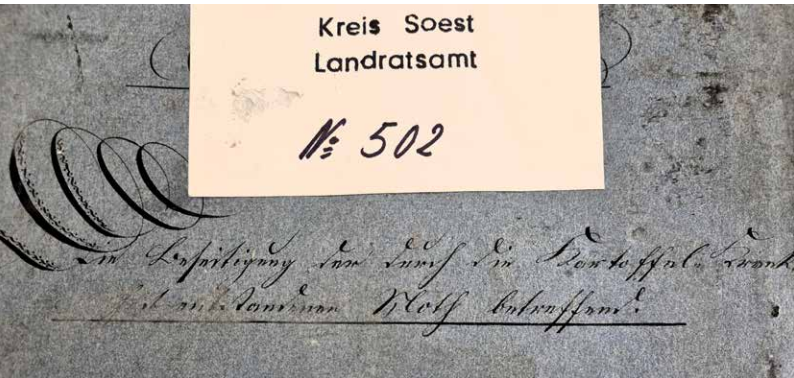 Kreis Soest
Landratsamt
№ 502
Die Beseitigung der durch die Kartoffel-Krank-
heit entstandenen Noth betreffend.